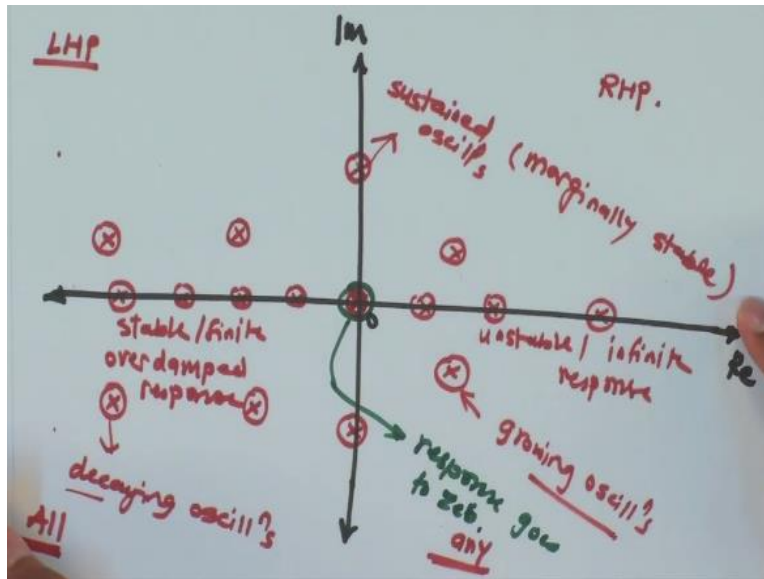 LHP
Im
RHP.
sustained
oscill?s
(marginally stable)
0
Re
stable/finite
overdamped
response
unstable/infinite
response
decaying oscill?s
growing oscill?s
response goes
to
All
any